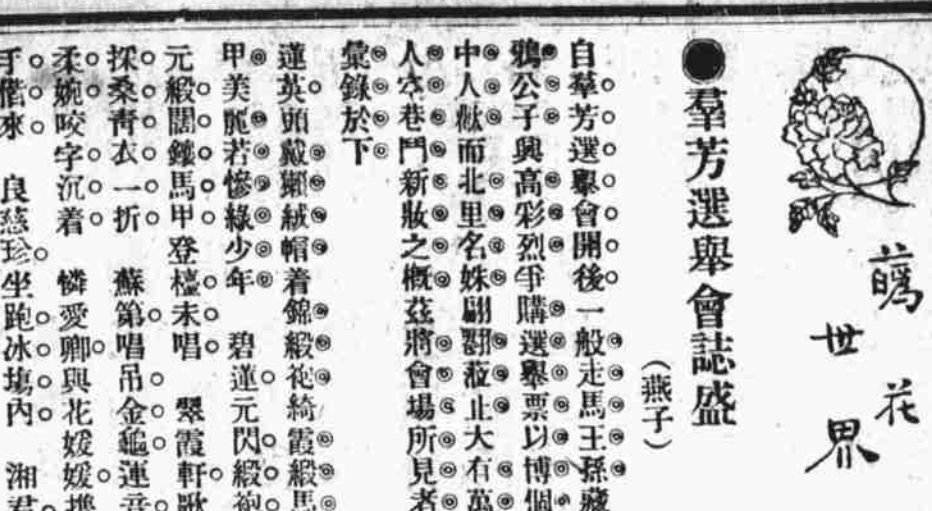 花世界
●羣芳選舉會誌盛
(燕子)
自羣芳選舉會開後一般走馬王孫藏
鴉公子興高彩烈爭購選舉票以博個
中人懽而北里名姝翩翻蒞止大有萬
人空巷鬥新妝之概茲將會場所見者
彙錄於下
蓮英頭戴獺絨帽着錦緞袍綺霞緞馬
甲美麗若慘綠少年 碧蓮元閃緞袍
元緞闊鑲馬甲登檯未唱 翠霞軒歌
採桑青衣一折 蘇第唱吊金龜連音
柔婉咬字沉着 憐愛卿與花媛媛携
手偕來 良慈珍坐跑冰塲內 湘君